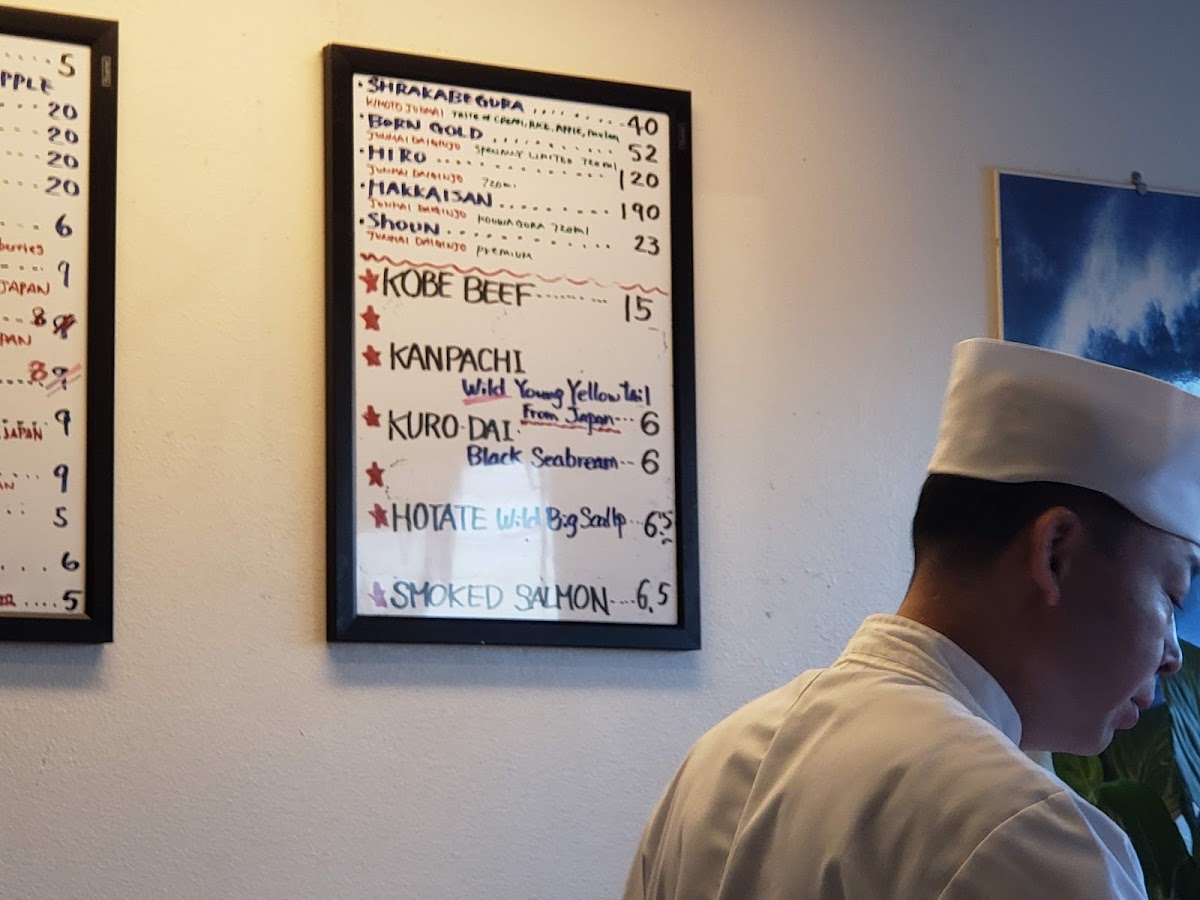 5
PPLE
20
20
20
20
6
berries
9
JAPAN
8
PAN
8
JAPAN 9
9
AN
5
6
5
• SHRAKABEGURA ........ 40
KIMOTO JUNMAI TASTE of CREAM, RICE, APPLE,
• BORN GOLD .......... 52
JUNMAI DAIGINJO SPECIALLY LIMITED 720ml
• HIRO .............. 120
JUNMAI DAIGINJO 720ml
• HAKKAISAN ......... 190
JUNMAI DAIGINJO KOUWAGURA 720ml
• SHOUN ............. 23
JUNMAI DAIGINJO PREMIUM
KOBE BEEF ......... 15
KANPACHI
Wild Young Yellowtail
From Japan --- 6
KURO-DAI
Black Seabream -- 6
HOTATE Wild Big Scallp .. 6.5
SMOKED SALMON --- 6.5